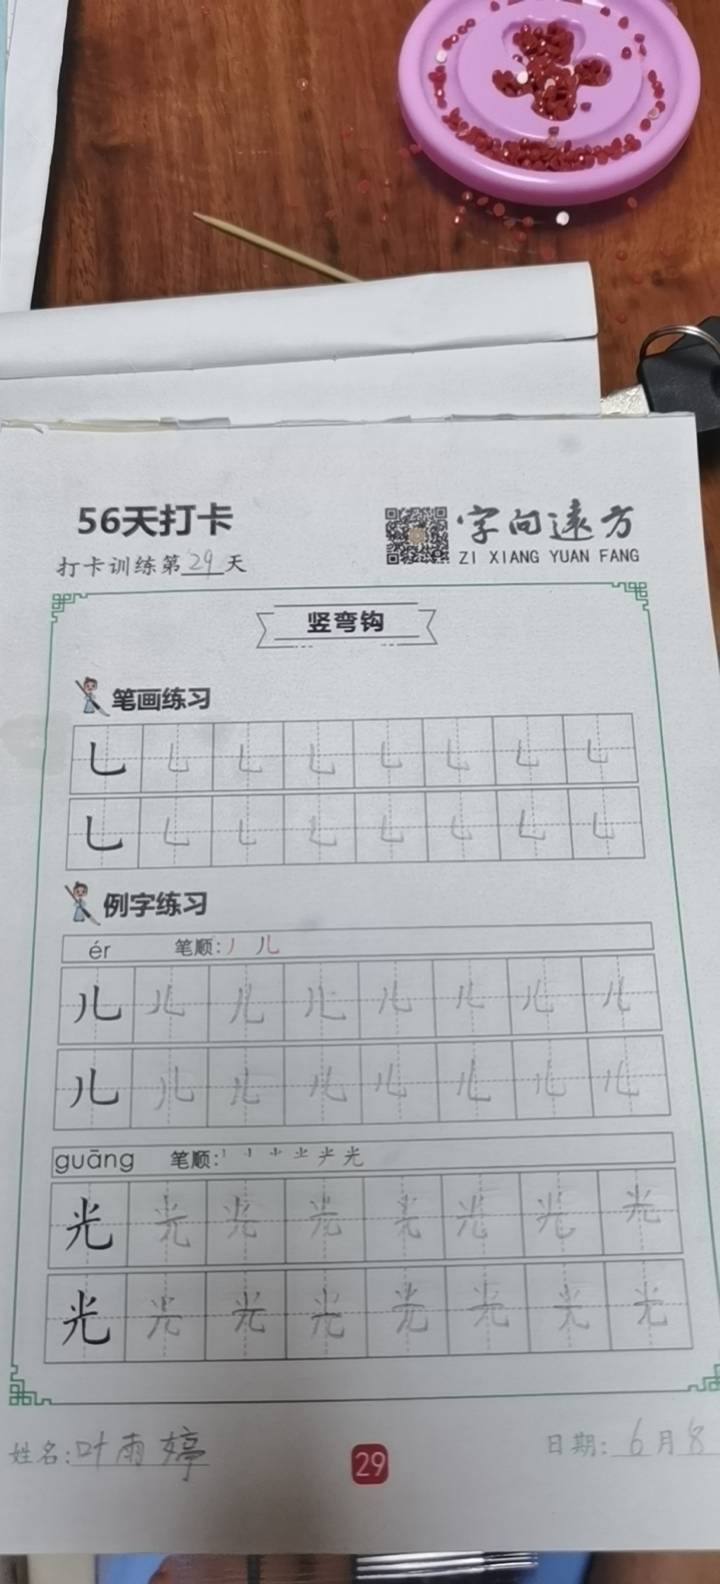 56天打卡
字向远方
打卡训练第29天
ZI XIANG YUAN FANG
竖弯钩
笔画练习
乚 乚 乚 乚 乚 乚 乚 乚
乚 乚 乚 乚 乚 乚 乚 乚
例字练习
ér 笔顺: 丿 儿
儿 儿 儿 儿 儿 儿 儿 儿
儿 儿 儿 儿 儿 儿 儿 儿
guāng 笔顺: 光
光 光 光 光 光 光 光 光
光 光 光 光 光 光 光 光
姓名: 叶雨婷
29
日期: 6月8